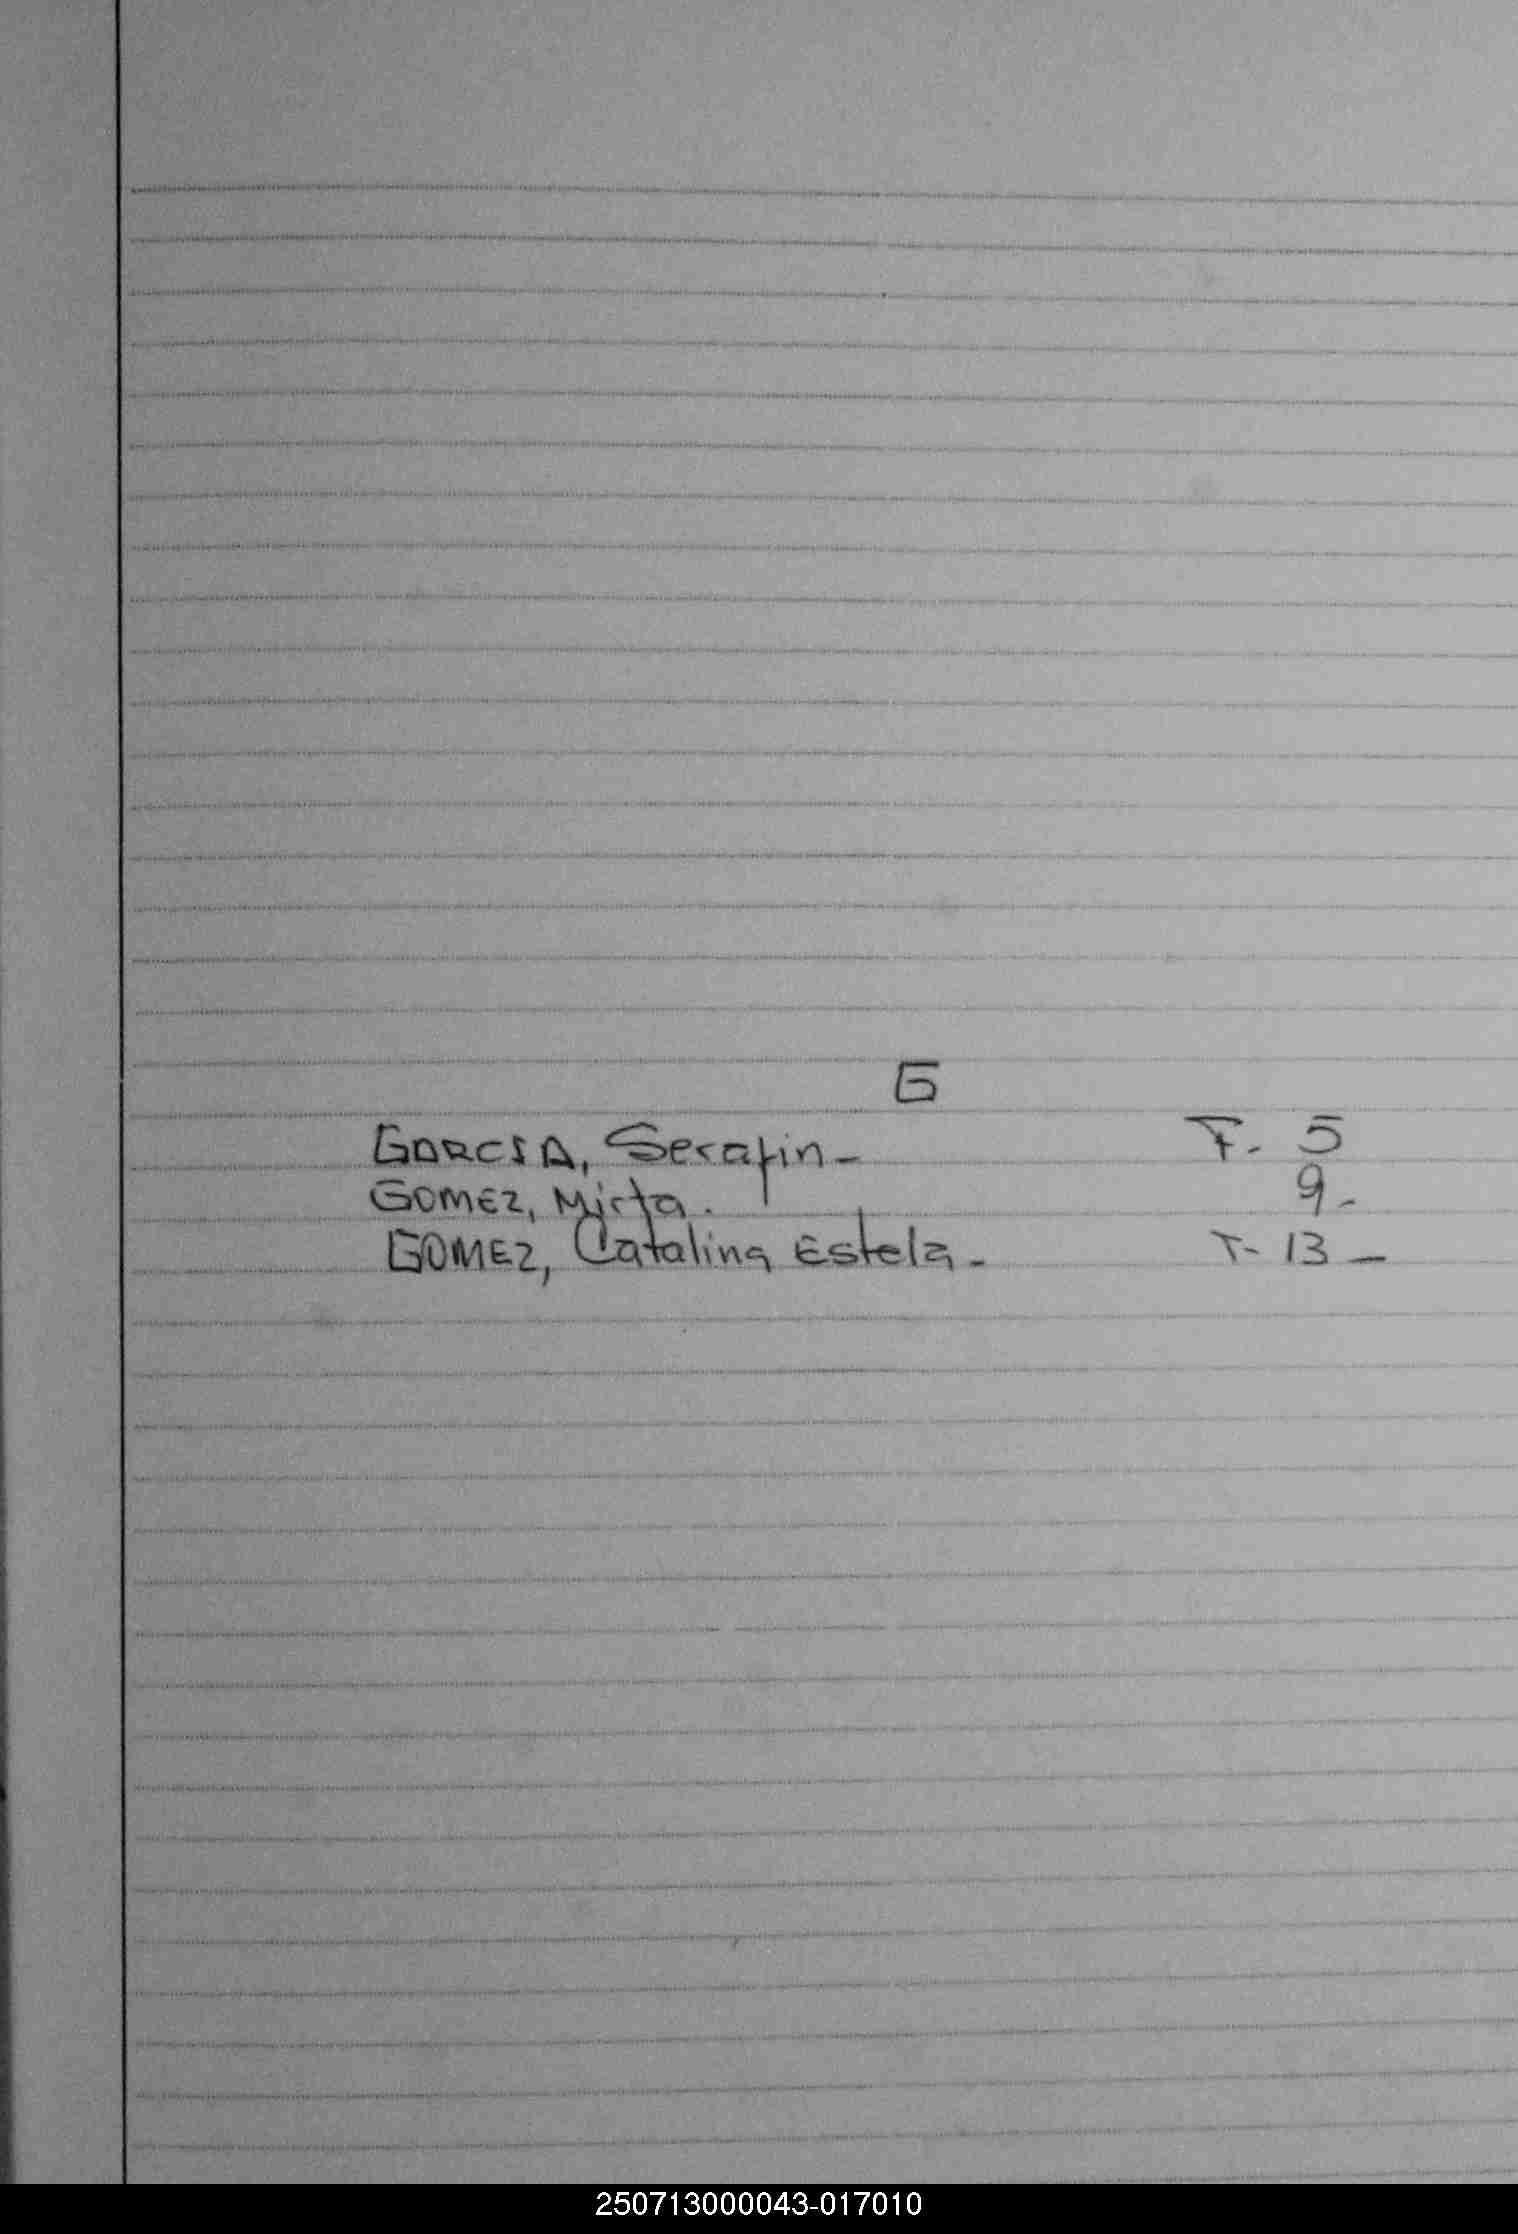 G
GARCIA, Serafin - F. 5
GOMEZ, Mirta. 9-
GOMEZ, Catalina Estela - F- 13 -
250713000043-017010